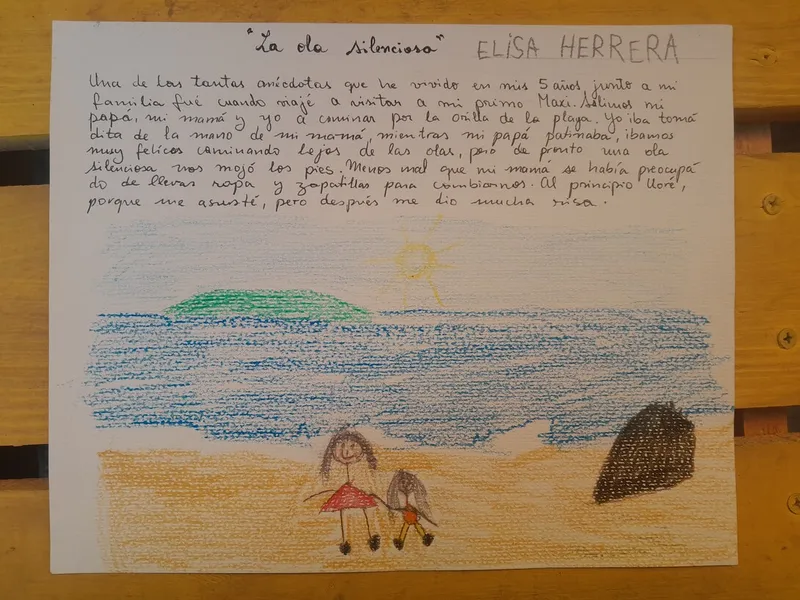 "La ola silenciosa" ELISA HERRERA
Una de las tantas anécdotas que he vivido en mis 5 años, junto a mi
familia fué cuando viajé a visitar a mi primo Maxi. Salimos mi
papá, mi mamá y yo a caminar por la orilla de la playa. Yo iba toma
dita de la mano de mi mamá, mientras mi papá patinaba, ibamos
muy felices caminando lejos de las olas, pero de pronto una ola
silenciosa nos mojó los pies. Menos mal que mi mamá se había preocupá
do de llevar ropa y zapatillas para cambiarnos. Al principio lloré,
porque me asusté, pero después me dio mucha risa.